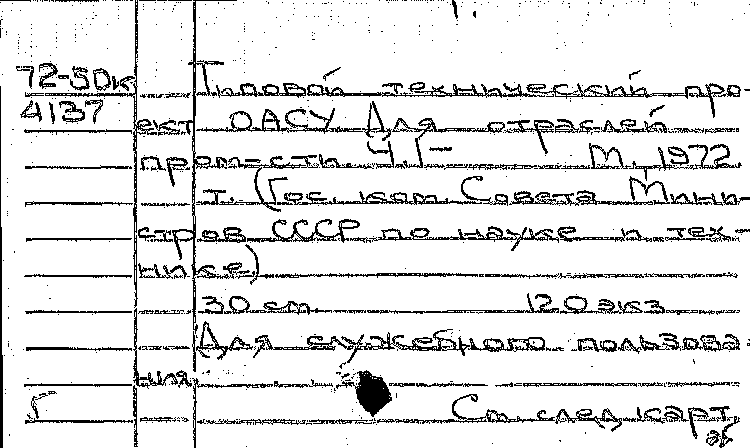 72-50к Типовой технический про-
4137 ект ОАСУ Для отраслей
пром-сти. Ч. 1- М. 1972.
т. (Гос. ком. Совета Мини-
стров СССР по науке и тех-
нике)
30 см. 120 экз
Для служебного пользова-
ния
Г См. след карт.